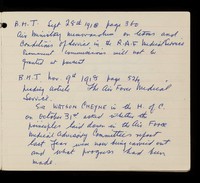 B.M.J. Sept 28th 1918 page 360
Air Ministry memorandum on terms and
Conditions of Service in the R.A.F. Medical Services
Permanent Commissions will not be
granted at present
B.M.J Nov 9th 1918 page 524
leading article The Air Force Medical
Service.
Sir WATSON CHEYNE in the H. of C.
on October 31st asked whether the
principles laid down in the Air Force
Medical Advisory Committees report
last year were now being carried out
and what progress had been
made